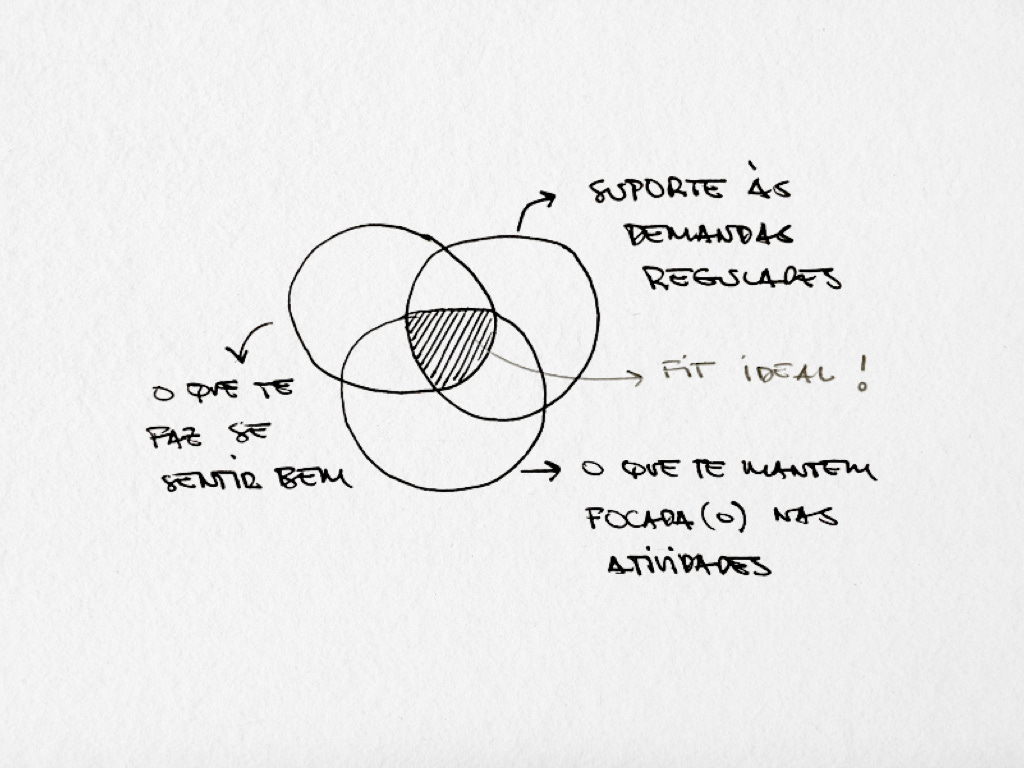 SUPORTE ÀS
DEMANDAS
REGULARES
FIT IDEAL!
O QUE TE
FAZ SE
SENTIR BEM
O QUE TE MANTEM
FOCADA(O) NAS
ATIVIDADES